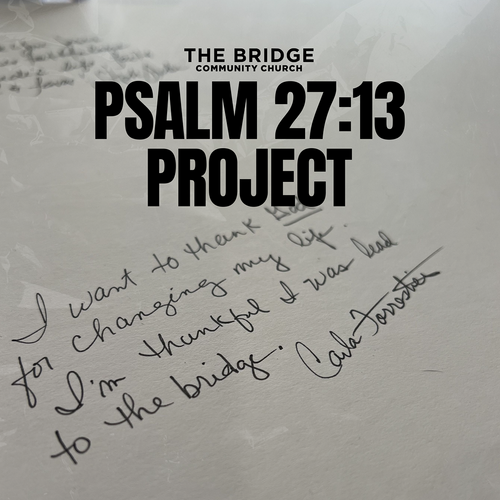 THE BRIDGE
COMMUNITY CHURCH
PSALM 27:13
PROJECT
I want to thank God
for changing my life.
I'm thankful I was lead
to the bridge.
Carla Forrester